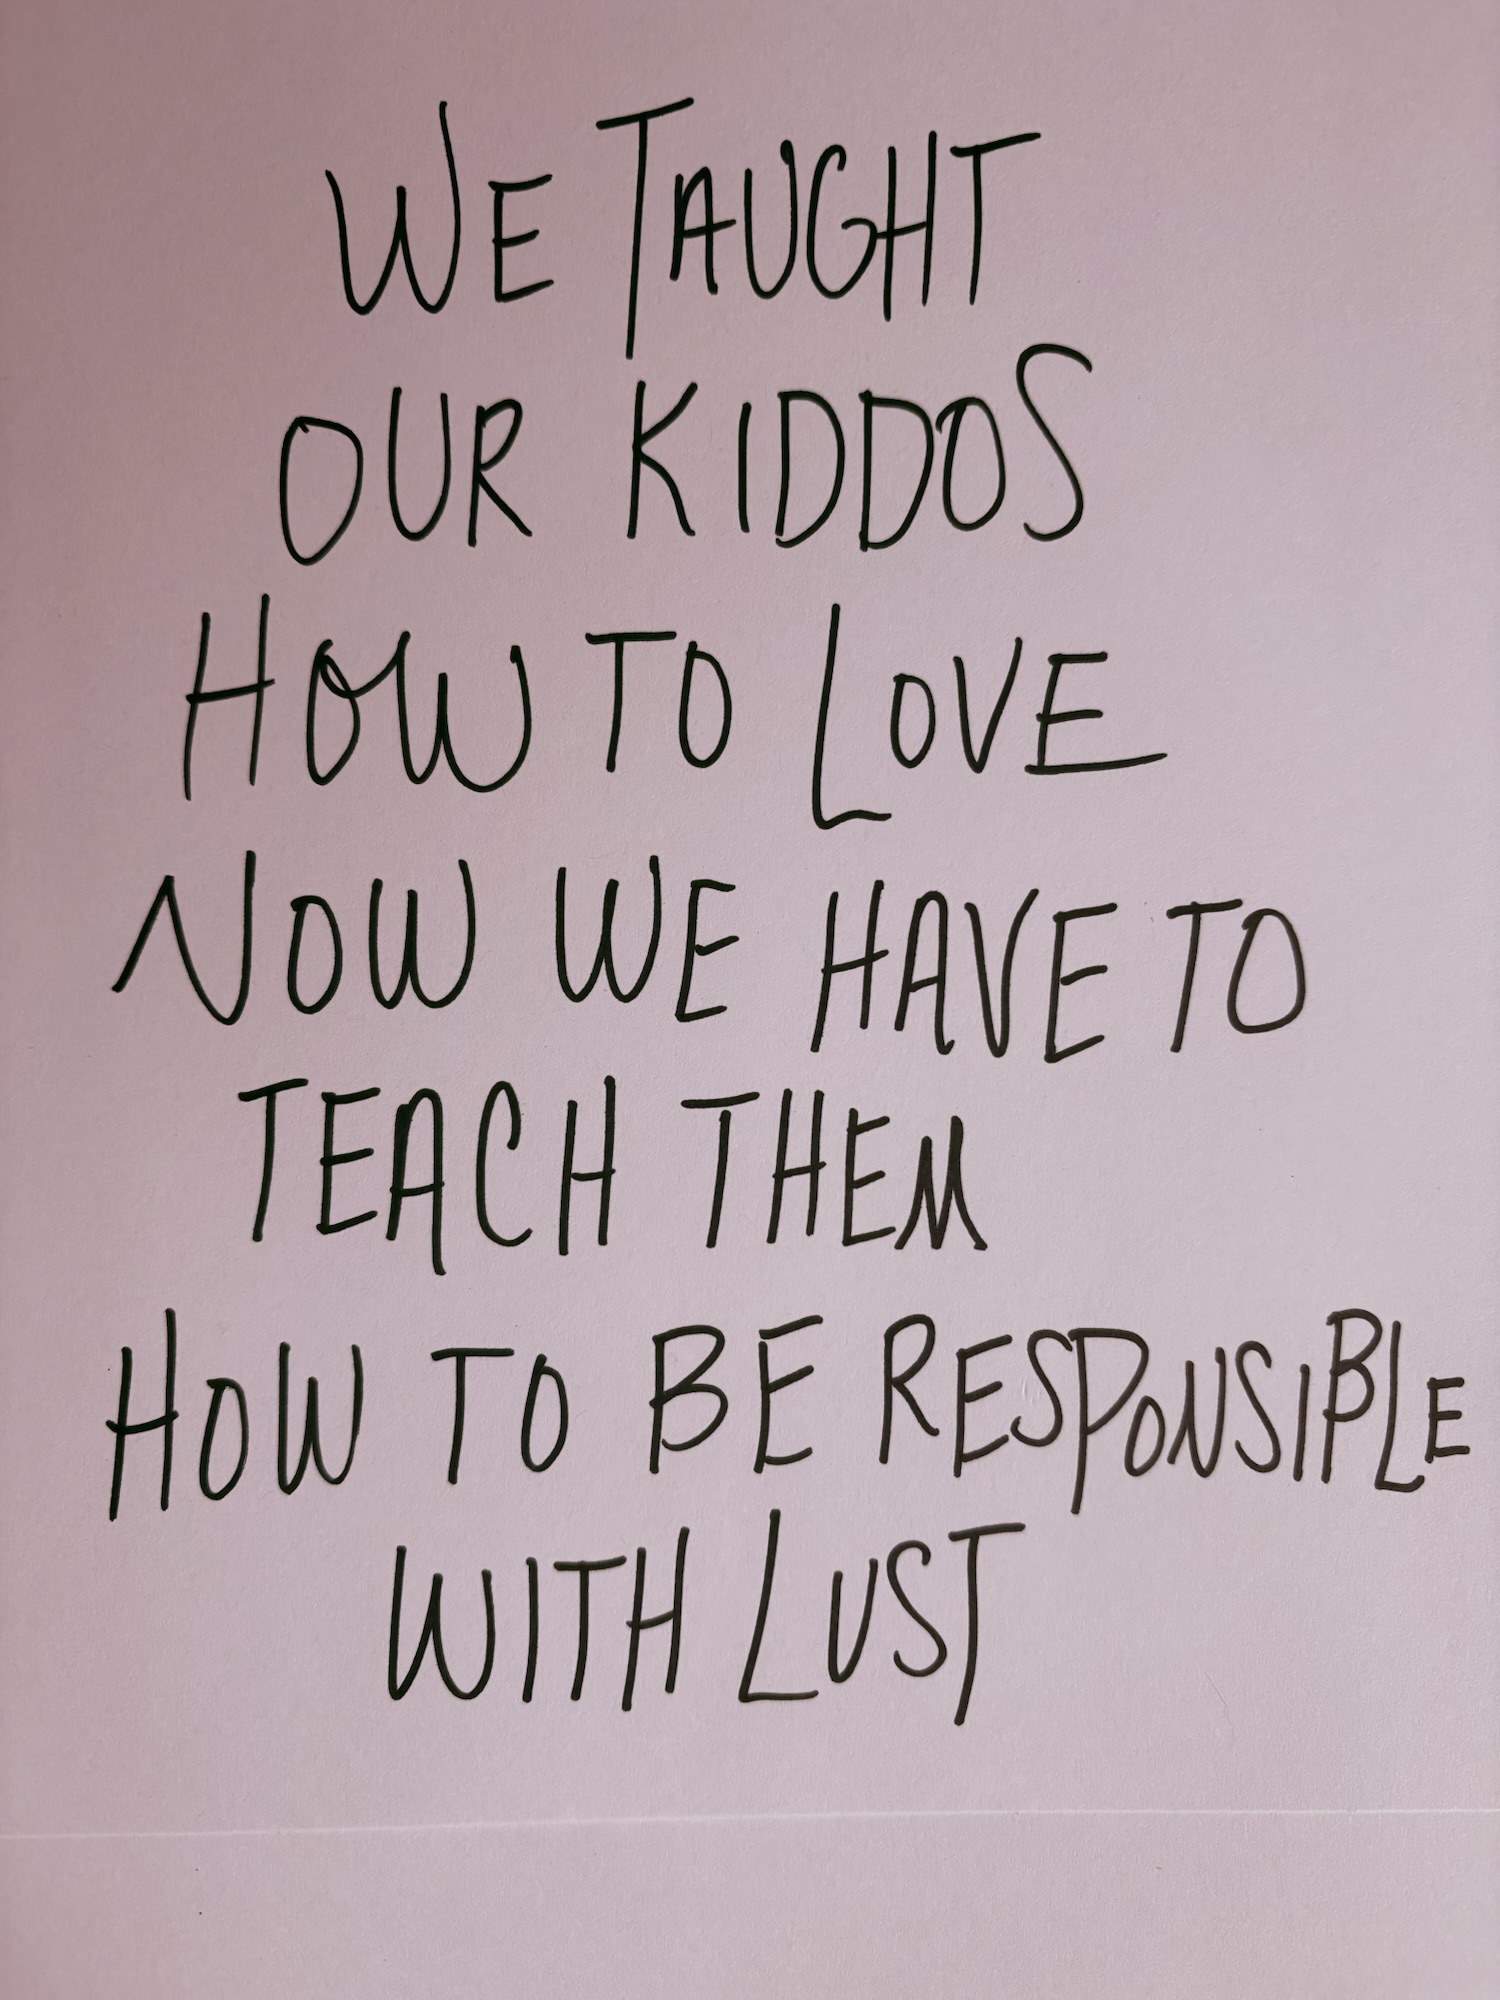 WE TAUGHT
OUR KIDDOS
HOW TO LOVE
NOW WE HAVE TO
TEACH THEM
HOW TO BE RESPONSIBLE
WITH LUST